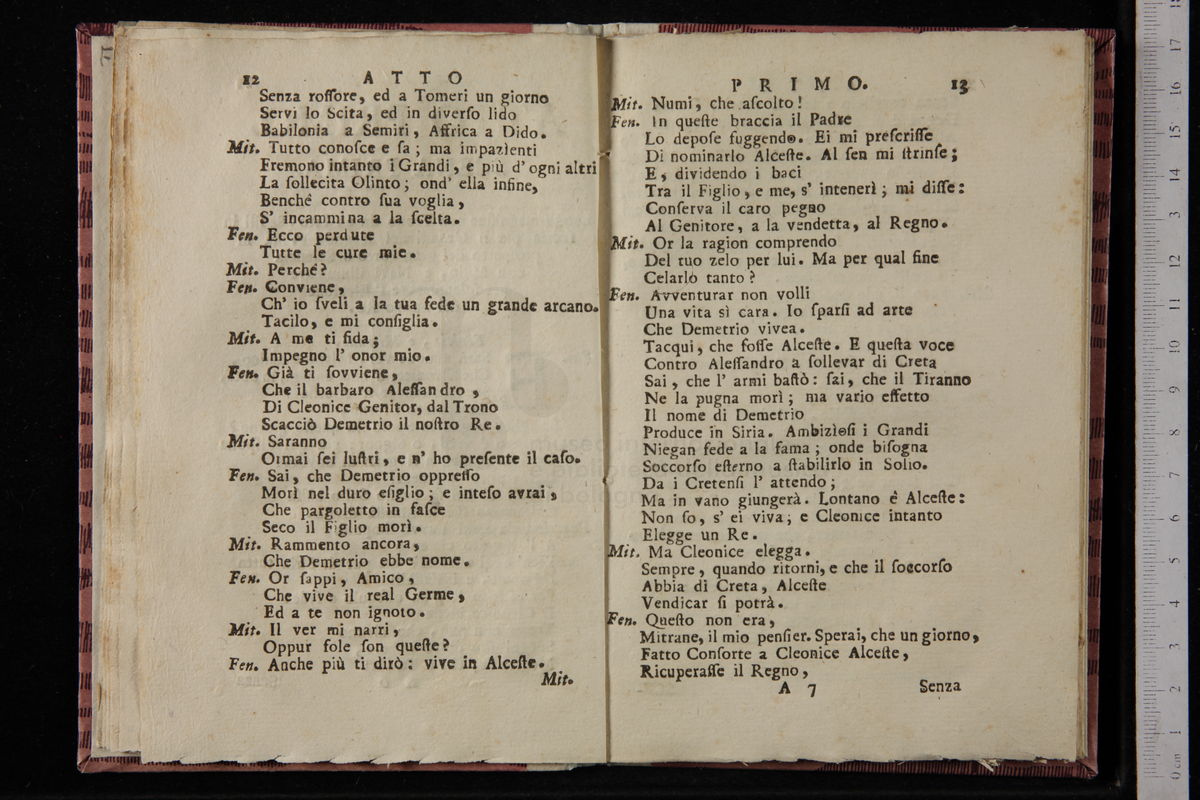 12 ATTO
Senza roſſore, ed a Tomeri un giorno
Servì lo Scita, ed in diverſo lido
Babilonia a Semiri, Affrica a Dido.
Mit. Tutto conoſce e ſa; ma impazienti
Fremono intanto i Grandi, e più d'ogni altri
La ſollecita Olinto; ond' ella infine,
Benchè contro ſua voglia,
S' incammina a la ſcelta.
Fen. Ecco perdute
Tutte le cure mie.
Mit. Perchè?
Fen. Conviene,
Ch' io ſveli a la tua fede un grande arcano.
Tacilo, e mi conſiglia.
Mit. A me ti fida;
Impegno l' onor mio.
Fen. Già ti ſovviene,
Che il barbaro Aleſſandro,
Di Cleonice Genitor, dal Trono
Scacciò Demetrio il noſtro Re.
Mit. Saranno
Oimai ſei luſtri, e n' ho preſente il caſo.
Fen. Sai, che Demetrio oppreſſo
Morì nel duro eſiglio; e inteſo avrai,
Che pargoletto in faſce
Seco il Figlio morì.
Mit. Rammento ancora,
Che Demetrio ebbe nome.
Fen. Or ſappi, Amico,
Che vive il real Germe,
Ed a te non ignoto.
Mit. Il ver mi narri,
Oppur fole ſon queſte?
Fen. Anche più ti dirò: vive in Alceſte.
Mit.
PRIMO. 13
Mit. Numi, che aſcolto!
Fen. In queſte braccia il Padre
Lo depoſe fuggendo. Ei mi preſcriſſe
Di nominarlo Alceſte. Al ſen mi ſtrinſe;
E, dividendo i baci
Tra il Figlio, e me, s' intenerì; mi diſſe:
Conſerva il caro pegno
Al Genitore, a la vendetta, al Regno.
Mit. Or la ragion comprendo
Del tuo zelo per lui. Ma per qual fine
Celarlo tanto?
Fen. Avventurar non volli
Una vita sì cara. Io ſparſi ad arte
Che Demetrio vivea.
Tacqui, che foſſe Alceſte. E queſta voce
Contro Aleſſandro a ſollevar di Creta
Sai, che l' armi baſtò: ſai, che il Tiranno
Ne la pugna morì; ma vario effetto
Il nome di Demetrio
Produce in Siria. Ambizioſi i Grandi
Niegan fede a la fama; onde biſogna
Soccorſo eſterno a ſtabilirlo in Soſio.
Da i Cretenſi l' attendo;
Ma in vano giungerà. Lontano è Alceſte:
Non ſo, s' ei viva; e Cleonice intanto
Elegge un Re.
Mit. Ma Cleonice elegga.
Sempre, quando ritorni, e che il ſoccorſo
Abbia di Creta, Alceſte
Vendicar ſi potrà.
Fen. Queſto non era,
Mitrane, il mio penſier. Sperai, che un giorno,
Fatto Conſorte a Cleonice Alceſte,
Ricuperaſſe il Regno,
A 7 Senza